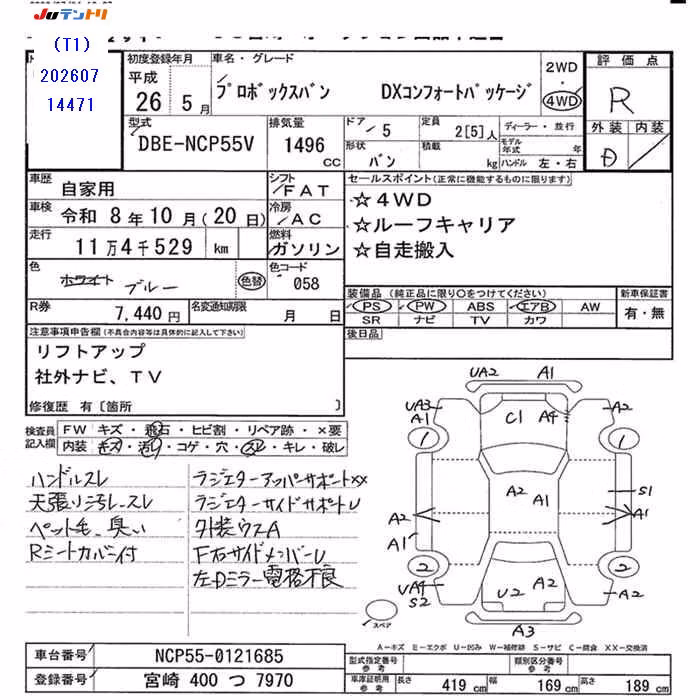 JUテントリ
(T1)
202607
14471
初度登録年月
平成
26 5月
車名・グレード
プロボックスバン DXコンフォートパッケージ
2WD
・
4WD
評価点
R
型式
DBE-NCP55V
排気量
1496
CC
ドア 5
形状
バン
定員 2[5]人
積載 kg
ディーラー・並行
モデル年式 年
ハンドル 左・右
外装 内装
D
車歴 自家用
シフト FAT
車検 令和 8年10月(20日)
冷房 AC
走行 11万4千529 km
燃料 ガソリン
色 ホワイト ブルー 色替
色コード 058
R券 7,440円
名変通知期限 月 日
セールスポイント(正常に機能するものに限ります)
☆4WD
☆ルーフキャリア
☆自走搬入
装備品(純正品に限り○をつけてください)
PS PW ABS エアB AW
SR ナビ TV カワ
新車保証書
有・無
後日品
注意事項申告欄(不具合内容等は具体的に記入して下さい)
リフトアップ
社外ナビ、TV
修復歴 有〔箇所 〕
検査員記入欄
FW キズ・飛石・ヒビ割・リペア跡・×要
内装 キズ・汚れ・コゲ・穴・スレ・キレ・破レ
ハンドルスレ
天張り汚れスレ
ペット毛、臭い
Rシートカバー付
ラジエターアッパーサポートXX
ラジエターサイドサポートU
外装ウスA
F右サイドメンバーU
左Dミラー電格不良
UA2 A1
UA3
A1
C1 A4
A2
1 1
A2 A1
S1
A2 A1
A1
2 2
UA4
S2
U2 A2
A2
A3
スペア
A−キズ E−エクボ U−凹み W−補修跡 S−サビ C−腐食 XX−交換済
車台番号 NCP55-0121685
登録番号 宮崎 400 つ 7970
型式指定番号
参考
類別区分番号
参考
車庫証明用
参考
長さ 419 cm
幅 169 cm
高さ 189 cm